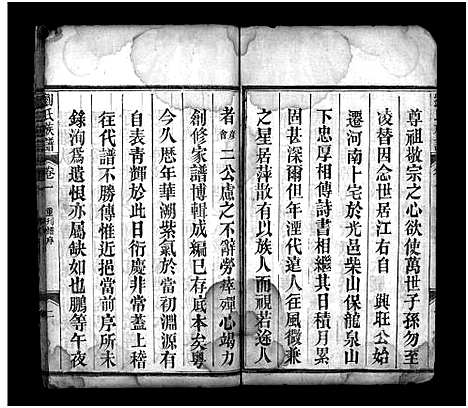 尊祖敬宗之心欲使萬世子孫勿至
凌替因念世居江右自 興旺公始
遷河南卜宅於光邑柴山保龍泉山
下忠厚相傳詩書相繼其日積月累
固甚深爾但年湮代遠人往風微兼
之星居萍散有以族人而視若途人
者 彦會 二公慮之不辭勞瘁殫心竭力
創修家譜博輯成編已存底本矣粤
今久歷年華溯紫氣於當初淵源有
自表青輝於此日衍慶非常蓋上稽
往代譜不勝傳惟近挹當前序所未
錄洵爲遺恨亦屬缺如也鵬等午夜
劉氏族譜 卷一 重刊譜序 二